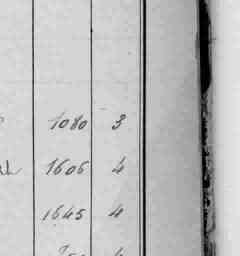 1080 3
1606 4
1645 4